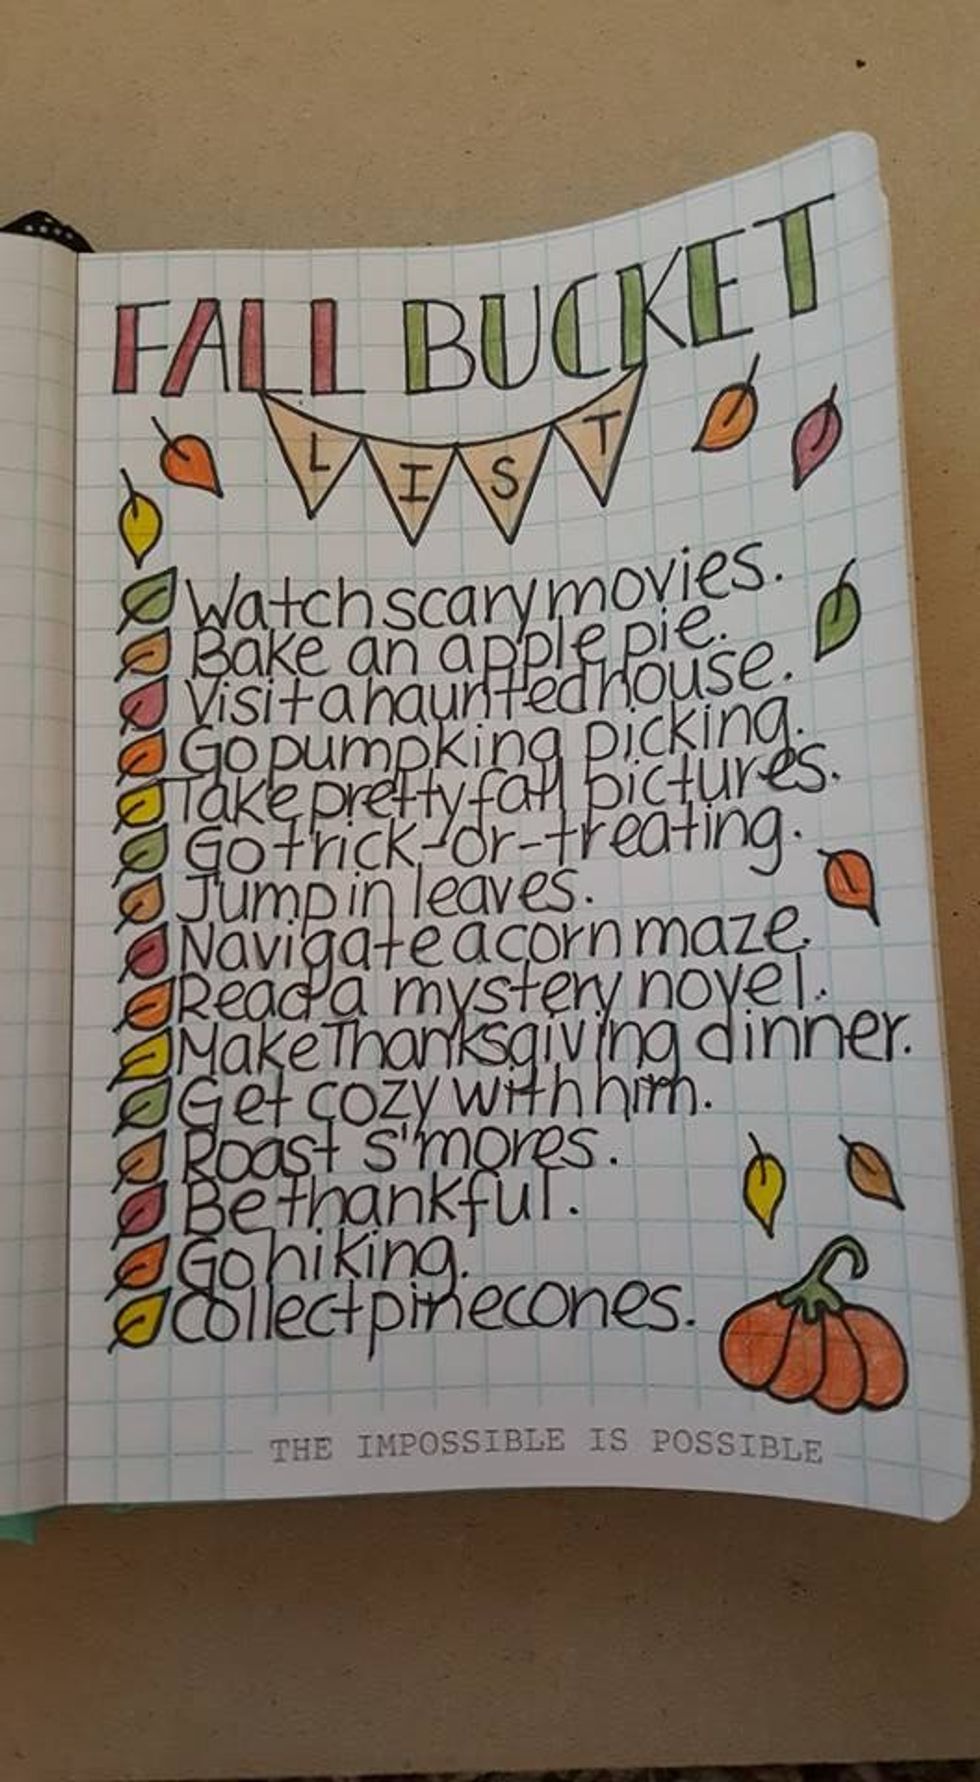 FALL BUCKET
LIST
Watch scary movies.
Bake an apple pie.
Visit a haunted house.
Go pumpking picking.
Take pretty fall pictures.
Go trick-or-treating.
Jump in leaves.
Navigate a corn maze.
Read a mystery novel.
Make Thanksgiving dinner.
Get cozy with him.
Roast s'mores.
Be thankful.
Go hiking.
Collect pinecones.
THE IMPOSSIBLE IS POSSIBLE